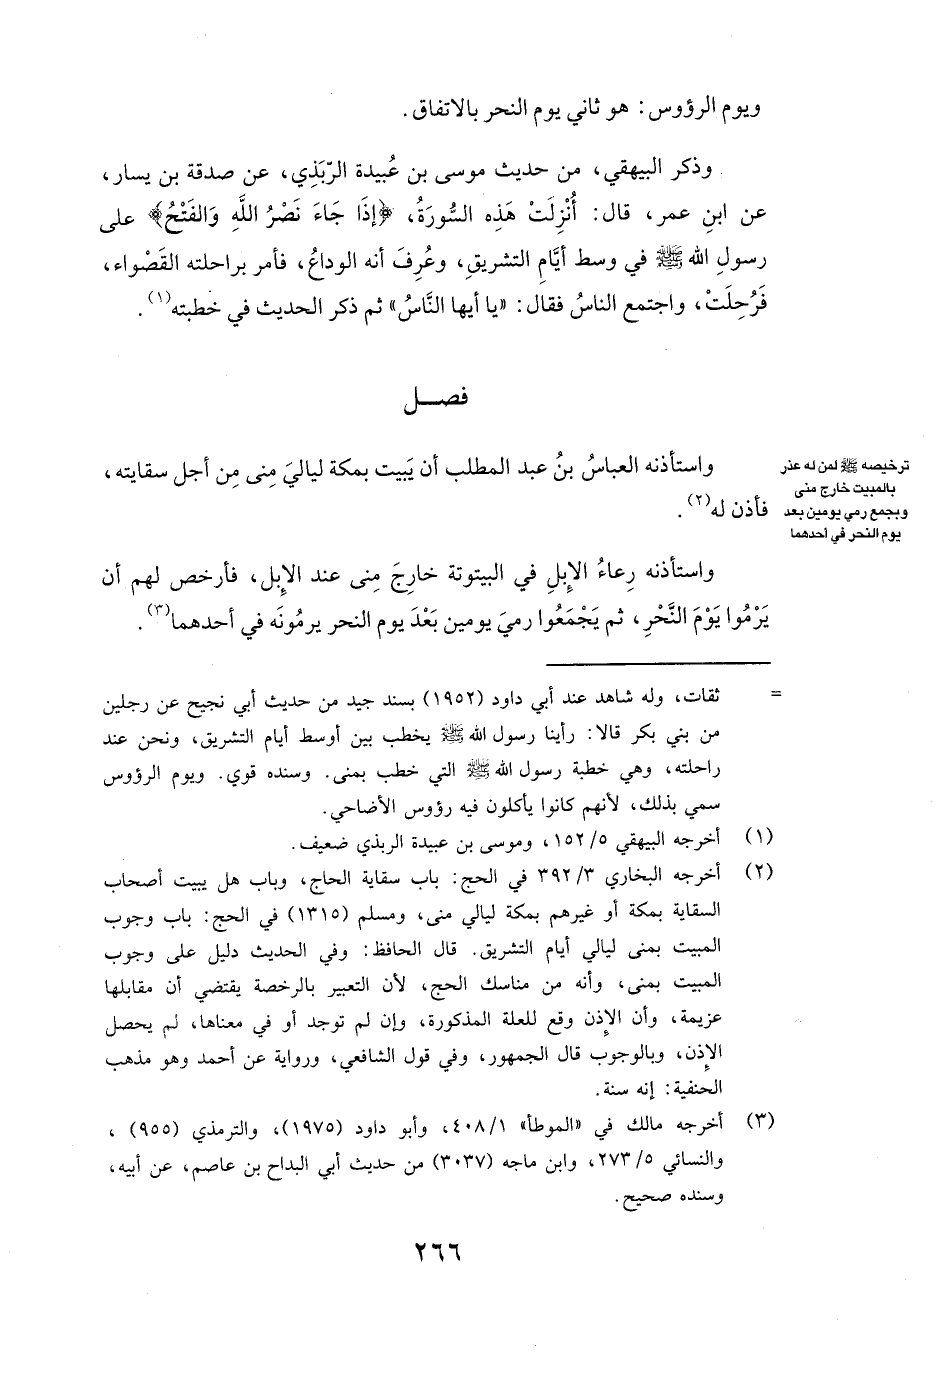 ويوم الرؤوس: هو ثاني يوم النحر بالاتفاق.
وذكر البيهقي، من حديث موسى بن عُبيدة الرّبَذِي، عن صدقة بن يسار،
عن ابنِ عمر، قال: أُنْزِلَتْ هَذِه السُّورَةُ، ﴿إِذَا جَاءَ نَصْرُ اللَّهِ وَالفَتْحُ﴾ على
رسولِ الله ﷺ في وسط أيَّامِ التشريقِ، وعُرِفَ أنه الوداعُ، فأمر براحلته القَصْواء،
فَرُحِلَتْ، واجتمع الناسُ فقال: «يا أيها النَّاسُ» ثم ذكر الحديث في خطبته(١).
فصـــل
واستأذنه العباسُ بنُ عبد المطلب أن يَبيت بمكة لياليَ مِنى مِن أجل سقايته،
فأذن له(٢).
ترخيصه ﷺ لمن له عذر
بالمبيت خارج منى
وبجمع رمي يومين بعد
يوم النحر في أحدهما
واستأذنه رِعاءُ الإِبلِ في البيتوتة خارِجَ مِنى عند الإِبل، فأرخص لهم أن
يَرْمُوا يَوْمَ النَّحْرِ، ثم يَجْمَعُوا رميَ يومين بَعْدَ يوم النحر يرمُونَه في أحدهما(٣).
= ثقات، وله شاهد عند أبي داود (١٩٥٢) بسند جيد من حديث أبي نجيح عن رجلين
من بني بكر قالا: رأينا رسول الله ﷺ يخطب بين أوسط أيام التشريق، ونحن عند
راحلته، وهي خطبة رسول الله ﷺ التي خطب بمنى. وسنده قوي. ويوم الرؤوس
سمي بذلك، لأنهم كانوا يأكلون فيه رؤوس الأضاحي.
(١) أخرجه البيهقي ٥/ ١٥٢، وموسى بن عبيدة الربذي ضعيف.
(٢) أخرجه البخاري ٣/ ٣٩٢ في الحج: باب سقاية الحاج، وباب هل يبيت أصحاب
السقاية بمكة أو غيرهم بمكة ليالي منى، ومسلم (١٣١٥) في الحج: باب وجوب
المبيت بمنى ليالي أيام التشريق. قال الحافظ: وفي الحديث دليل على وجوب
المبيت بمنى، وأنه من مناسك الحج، لأن التعبير بالرخصة يقتضي أن مقابلها
عزيمة، وأن الإِذن وقع للعلة المذكورة، وإن لم توجد أو في معناها، لم يحصل
الإِذن، وبالوجوب قال الجمهور، وفي قول الشافعي، ورواية عن أحمد وهو مذهب
الحنفية: إنه سنة.
(٣) أخرجه مالك في «الموطأ» ١/ ٤٠٨، وأبو داود (١٩٧٥)، والترمذي (٩٥٥) ،
والنسائي ٥/ ٢٧٣، وابن ماجه (٣٠٣٧) من حديث أبي البداح بن عاصم، عن أبيه،
وسنده صحيح.
٢٦٦